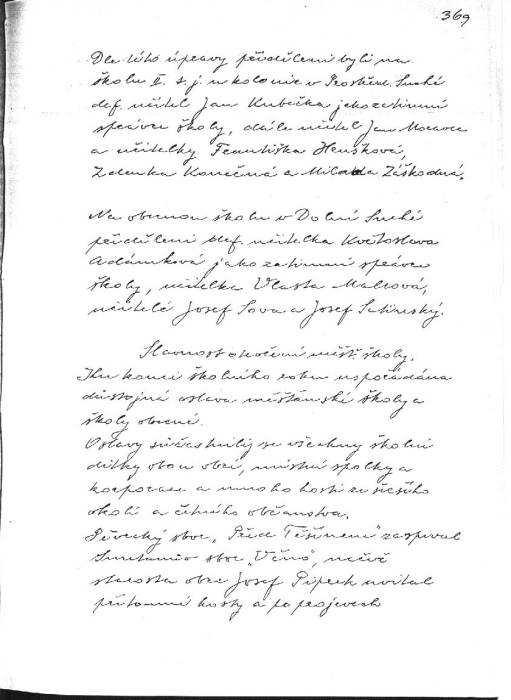 369
Dle této úpravy přiděleni byli na
školu II. s. j. u kolonie v Prostřed. Suché
def. učitel Jan Kubička jako zatimní
správce školy, dále učitel Jan Moravec
a učitelky Františka Heušková,
Zdenka Konečná a Milada Záškodná.
Na obecnou školu v Dolní Suché
přiděleni def. učitelka Květoslava
Adámková jako zatimní správce
školy, učitelka Vlasta Malcová,
učitelé Josef Sova a Josef Satinský.
Slavnost otevření měšť. školy.
Ku konci školního roku uspořádána
důstojná oslava měšťanské školy a
školy obecné.
Oslavy súčastnily se všechny školní
dítky obou obcí, místní spolky a
korporace a mnoho hostí ze širšího
okolí a četného občanstva.
Pěvecký sbor zazpíval
Smetanův sbor „Věno", načež
starosta obce Josef Piprek uvítal
přítomné hosty a po projevech